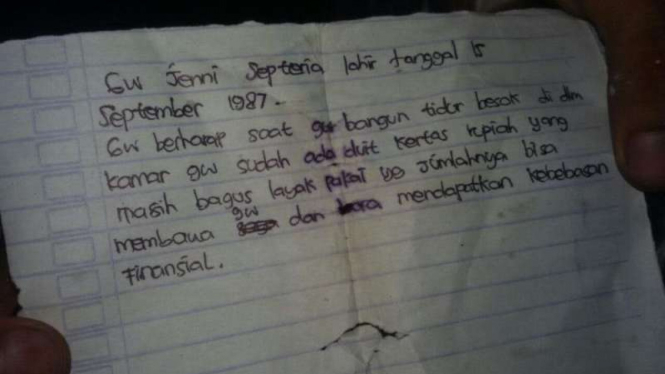 Gw Jenni Septeria lahir tanggal 15
September 1987.
Gw berharap saat gw bangun tidur besok di dlm
kamar gw sudah ada duit kertas rupiah yang
masih bagus layak pakai yg jumlahnya bisa
membawa gw dan mendapatkan kebebasan
Finansial.